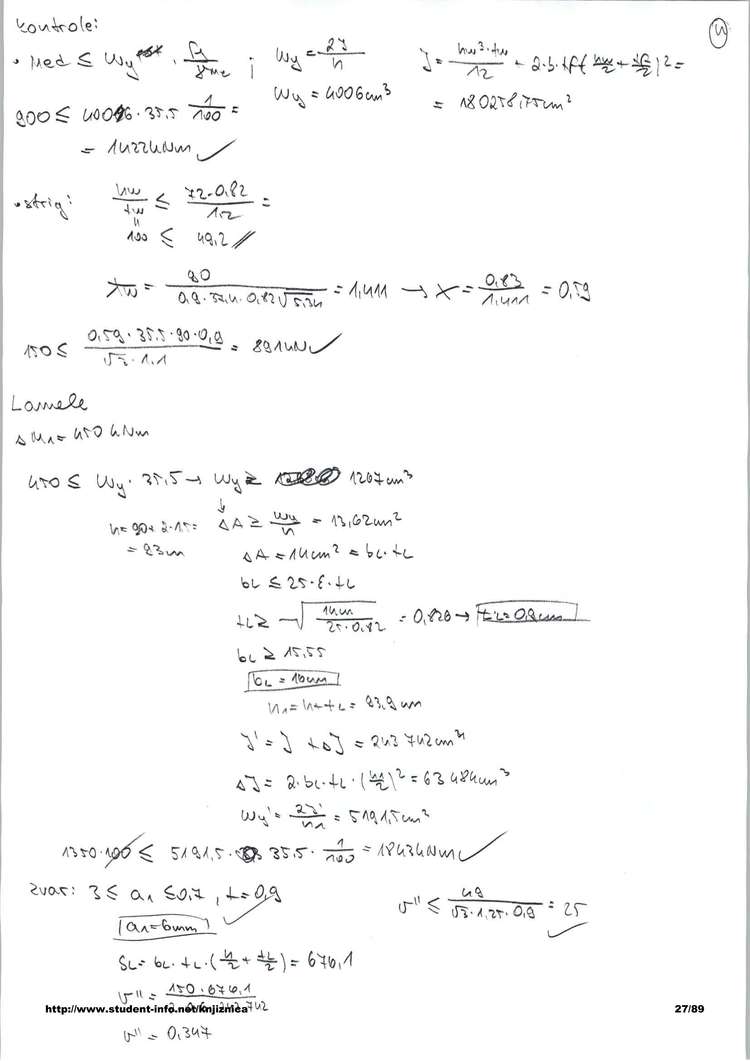 Kontrole:
4
• Med ≤ Wy · fy/γM2 ; Wy = 2J/h J = hw³·tw/12 + 2·b·tf·(hw/2 + tf/2)² =
Wy = 4006cm³ = 180258,75cm²
900 ≤ 4006·35.5 1/100 =
= 1422kNm ✓
• strig: hw/tw ≤ 72·0.82/1.2 =
100 ≤ 49,2 //
λw = 90/(0,9·37,4·0,82√5,34) = 1,411 → χ = 0,83/1,411 = 0,59
150 ≤ 0,59·35.5·90·0,9/(√3·1,1) = 891kN ✓
Lamele
ΔM1 = 450 kNm
450 ≤ Wy·35,5 → Wy ≥ 1267cm³
h = 90+2·1.5 = ΔA ≥ Wy/h = 13,62cm²
= 93cm
ΔA = 14cm² = bL·tL
bL ≤ 25·ε·tL
tL ≥ √(14/25·0,82) = 0,826 → tL = 0,9cm
bL ≥ 15,55
bL = 16cm
h1 = h+tL = 93,9cm
J' = J + ΔJ = 243742cm⁴
ΔJ = 2·bL·tL·(h1/2)² = 63484cm³
Wy' = 2J'/h1 = 5191,5cm²
1350·100 ≤ 5191,5· 35.5· 1/100 = 1843kNm ✓
zvar: 3 ≤ a1 ≤ 0,7, t=0,9
v'' ≤ 49/(√3·1,25·0,9) = 25 ✓
a1=6mm ✓
SL = bL·tL·(h/2 + tL/2) = 676,1
v'' = 150·676,1
http://www.student-info.net/knjiznica
27/89
v'' = 0,347